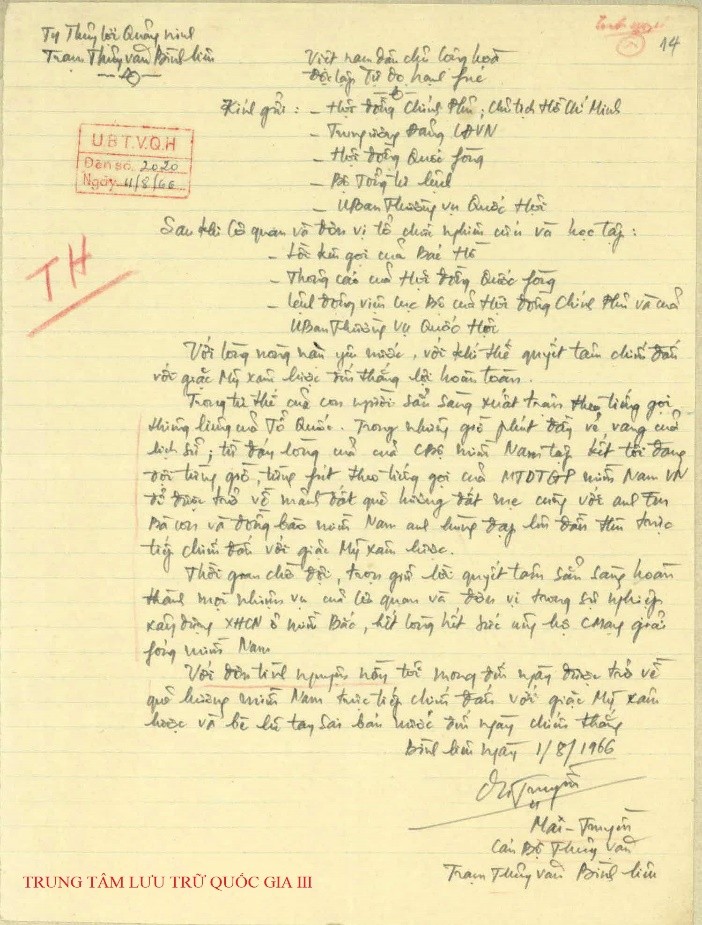 Ty Thủy lợi Quảng Ninh
Trạm Thủy văn Bình liêu
14
Việt nam dân chủ Cộng hoà
Độc lập Tự do hạnh phúc
Kính gửi : – Hội đồng Chính Phủ, Chủ tịch Hồ Chí Minh
– Trung ương Đảng LĐVN
– Hội đồng Quốc fòng
– Bộ Tổng tư lệnh
– UBan Thường vụ Quốc Hội
U.B.T.V.Q.H
Đến số 2020
Ngày 11/8/66
Sau khi Cơ quan và đơn vị tổ chức nghiên cứu và học tập :
– Lời kêu gọi của Bác Hồ
– Thông cáo của Hội đồng Quốc fòng
– Lệnh động viên cục Bộ của Hội đồng Chính Phủ và của
UBan Thường vụ Quốc Hội
TH
Với lòng nồng nàn yêu nước, với khí thế quyết tâm chiến đấu
với giặc Mỹ xâm lược đến thắng lợi hoàn toàn.
Trong tư thế của con người sẵn sàng xuất trận theo tiếng gọi
thiêng liêng của Tổ Quốc. Trong những giờ phút đầy vẻ vang của
lịch sử, từ đáy lòng của của CBộ miền Nam tập kết tôi đang
đợi từng giờ, từng fút theo tiếng gọi của MTDTGP miền Nam VN
để được trở về mảnh đất quê hương đất mẹ cùng với anh em
Bà con và đồng bào miền Nam anh hùng đạp lên đầu thù trực
tiếp chiến đấu với giặc Mỹ xâm lược.
Thời gian chờ đợi, trọn giữ lời quyết tâm sẵn sàng hoàn
thành mọi nhiệm vụ của Cơ quan và đơn vị trong sự nghiệp
xây dựng XHCN ở miền Bắc, hết lòng hết sức ủng hộ CMạng giải
fóng miền Nam
Với đơn tình nguyện này tôi mong đến ngày được trở về
quê hương miền Nam trực tiếp chiến đấu với giặc Mỹ xâm
lược và bè lũ tay sai bán nước đến ngày chiến thắng
Bình liêu ngày 1/8/1966
Mai - Truyền
Cán Bộ Thủy văn
Trạm Thủy văn Bình liêu
TRUNG TÂM LƯU TRỮ QUỐC GIA III